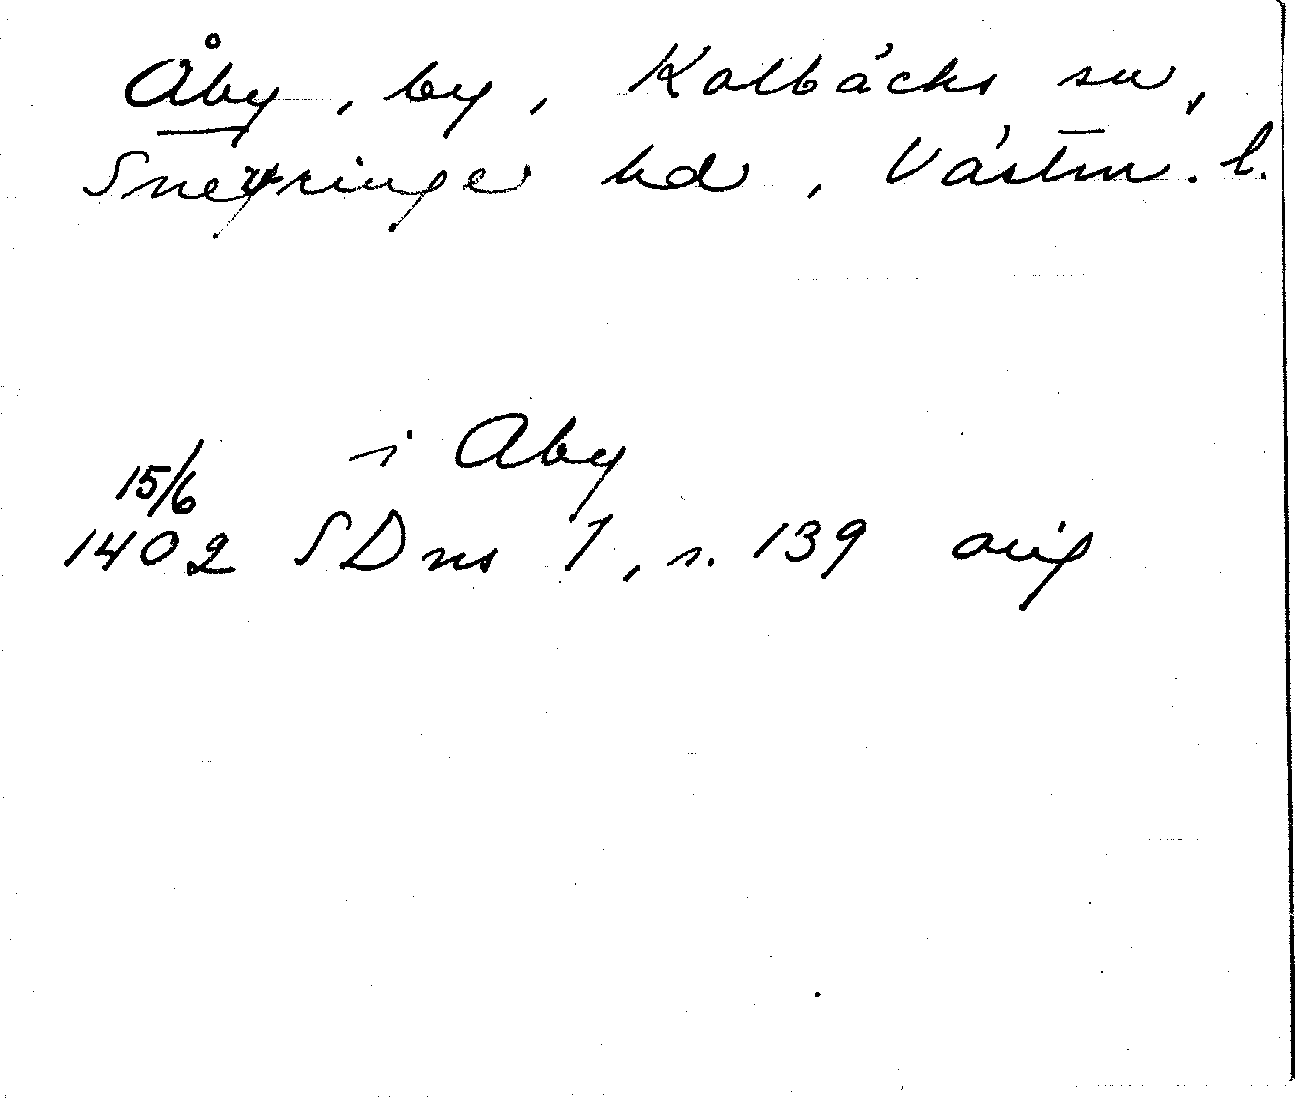 Åby, by, Kolbäcks sn,
Snevringe hd, Västm. l.
i Aby
15/6
1402 SDns 1, s. 139 orig